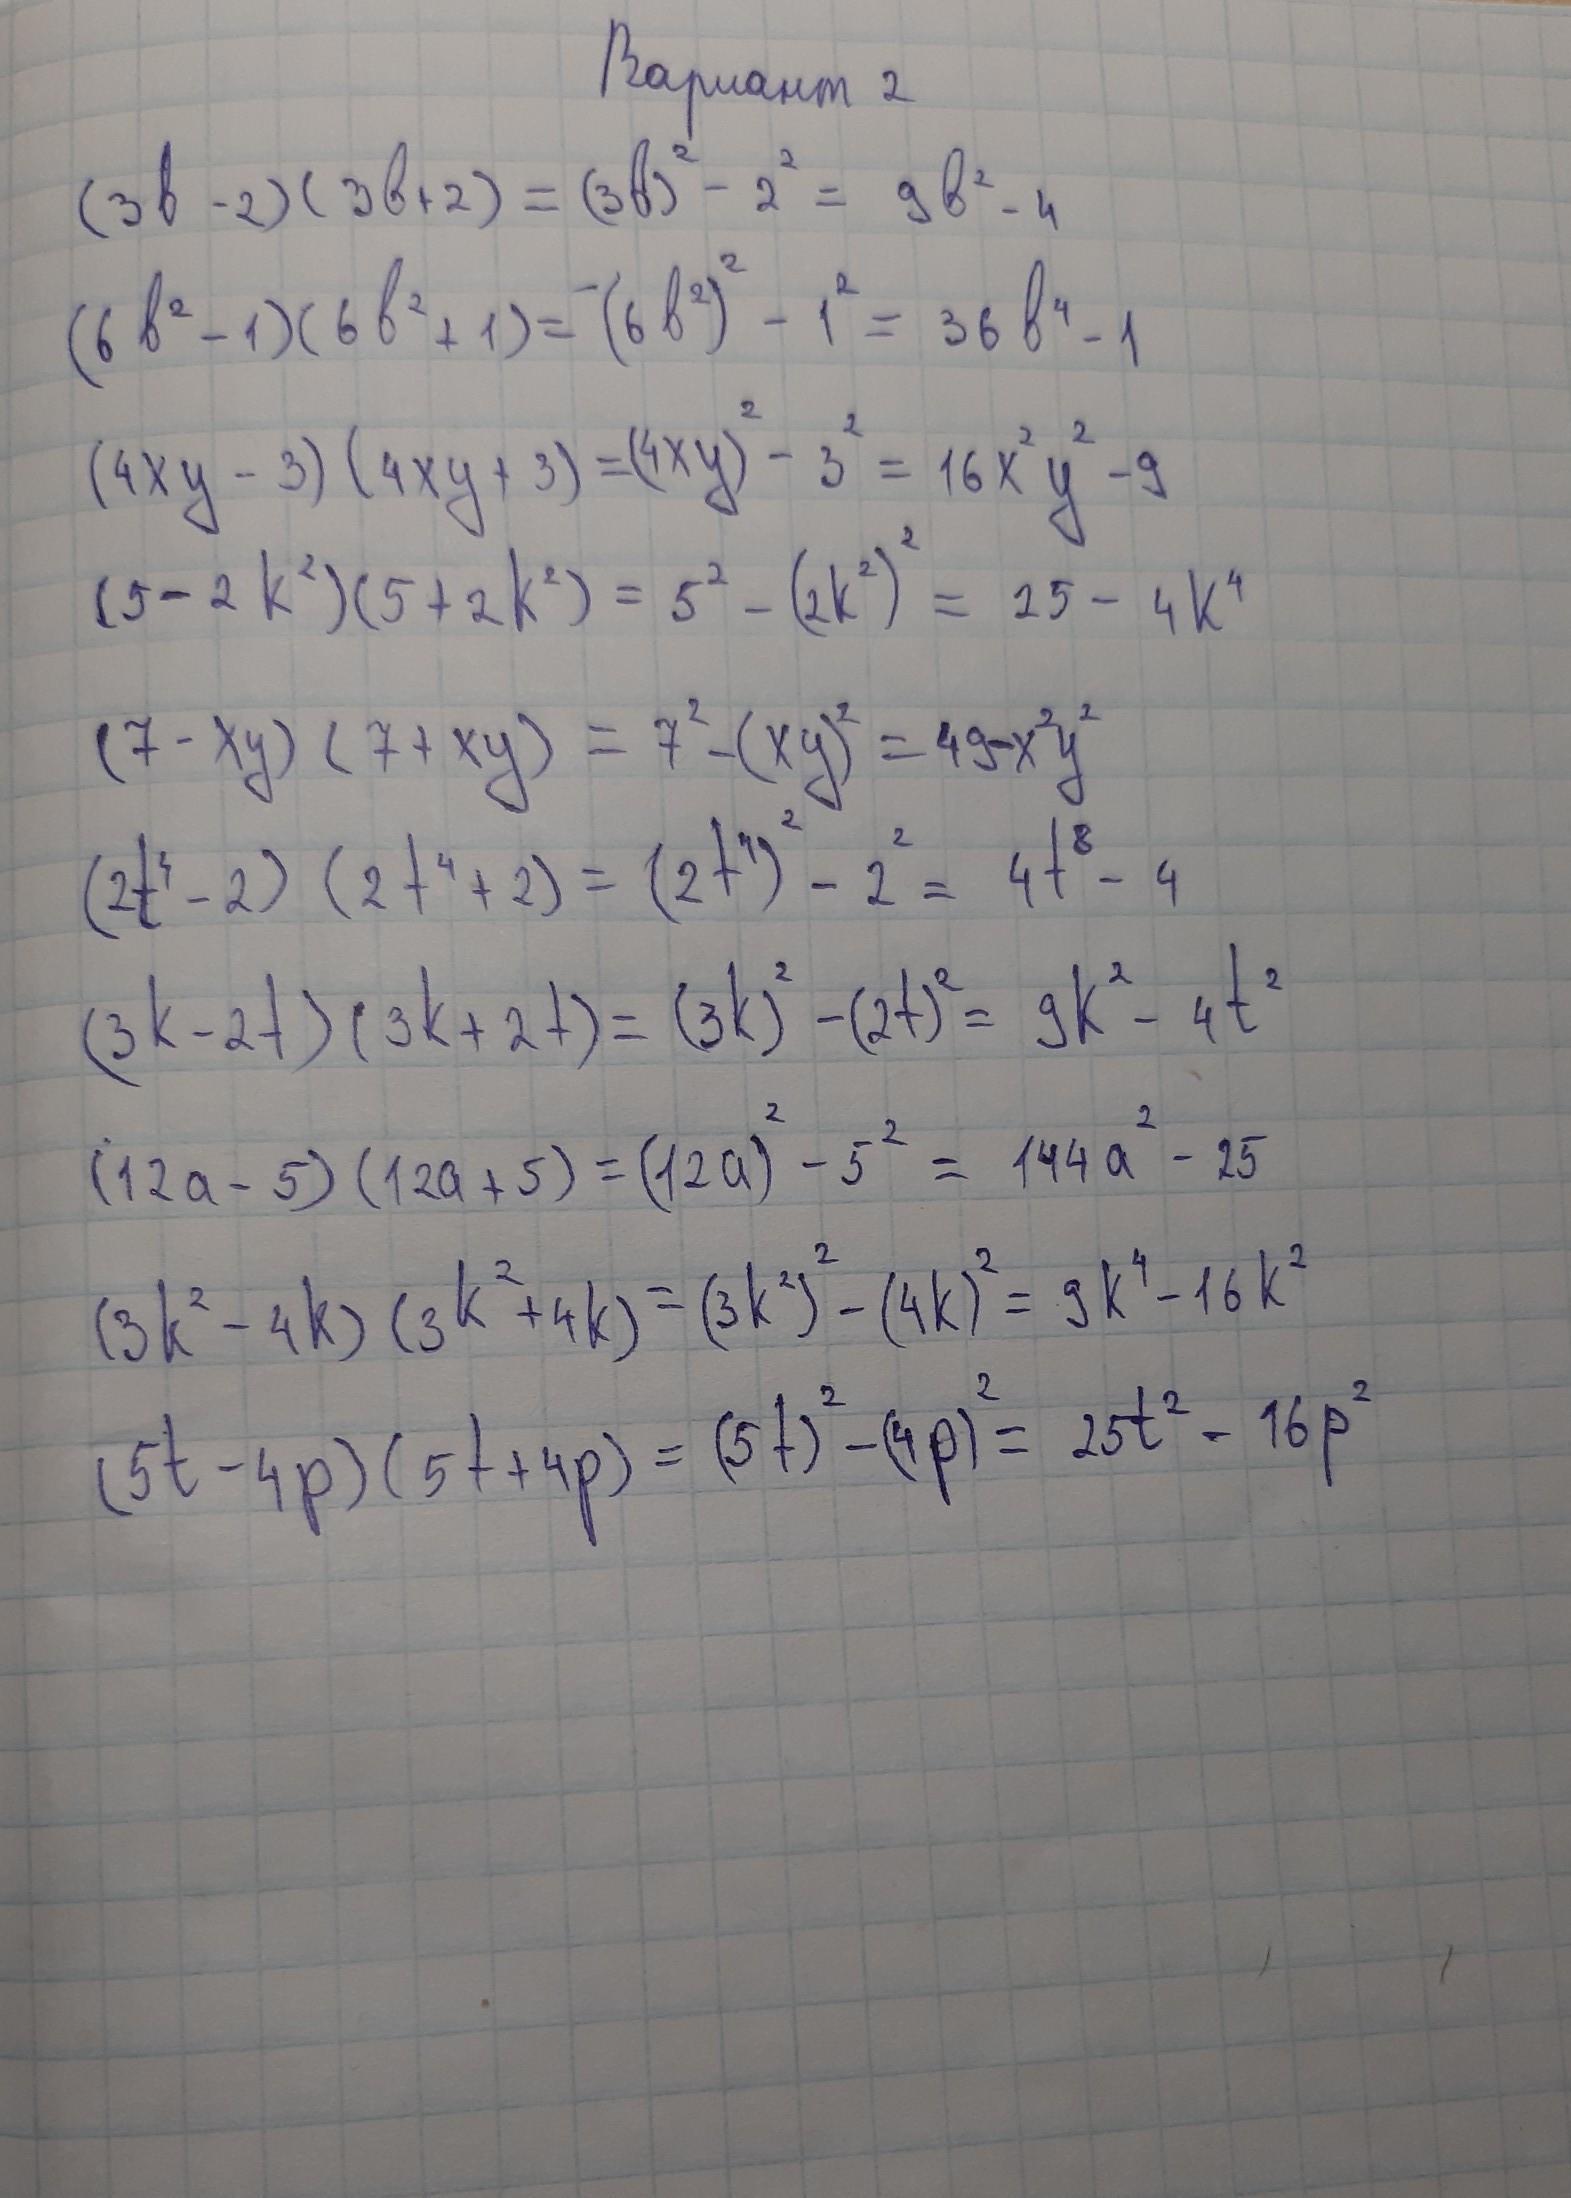 Вариант 2
(3b - 2)(3b + 2) = (3b)² - 2² = 9b² - 4
(6b² - 1)(6b² + 1) = (6b²)² - 1² = 36b⁴ - 1
(4xy - 3)(4xy + 3) = (4xy)² - 3² = 16x²y² - 9
(5 - 2k²)(5 + 2k²) = 5² - (2k²)² = 25 - 4k⁴
(7 - xy)(7 + xy) = 7² - (xy)² = 49 - x²y²
(2t⁴ - 2)(2t⁴ + 2) = (2t⁴)² - 2² = 4t⁸ - 4
(3k - 2t)(3k + 2t) = (3k)² - (2t)² = 9k² - 4t²
(12a - 5)(12a + 5) = (12a)² - 5² = 144a² - 25
(3k² - 4k)(3k² + 4k) = (3k²)² - (4k)² = 9k⁴ - 16k²
(5t - 4p)(5t + 4p) = (5t)² - (4p)² = 25t² - 16p²